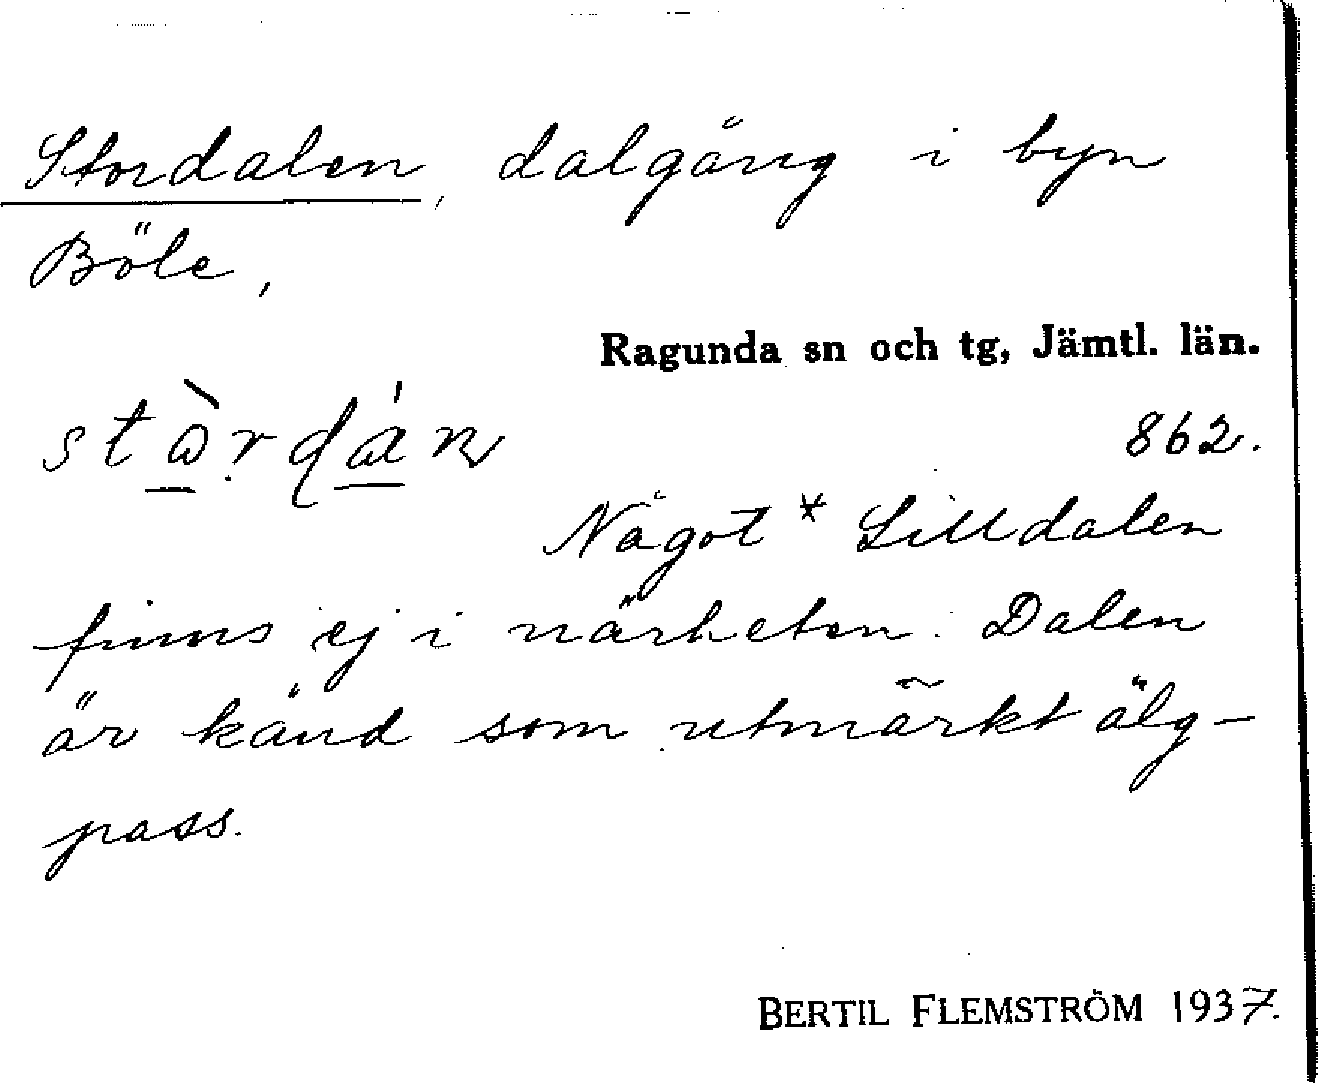 Stordalen, dalgång i byn
Böle,
Ragunda sn och tg, Jämtl. län.
862.
Något * Lilldalen
finns ej i närheten. Dalen
är känd som utmärkt älg-
pass.
BERTIL FLEMSTRÖM 1937.